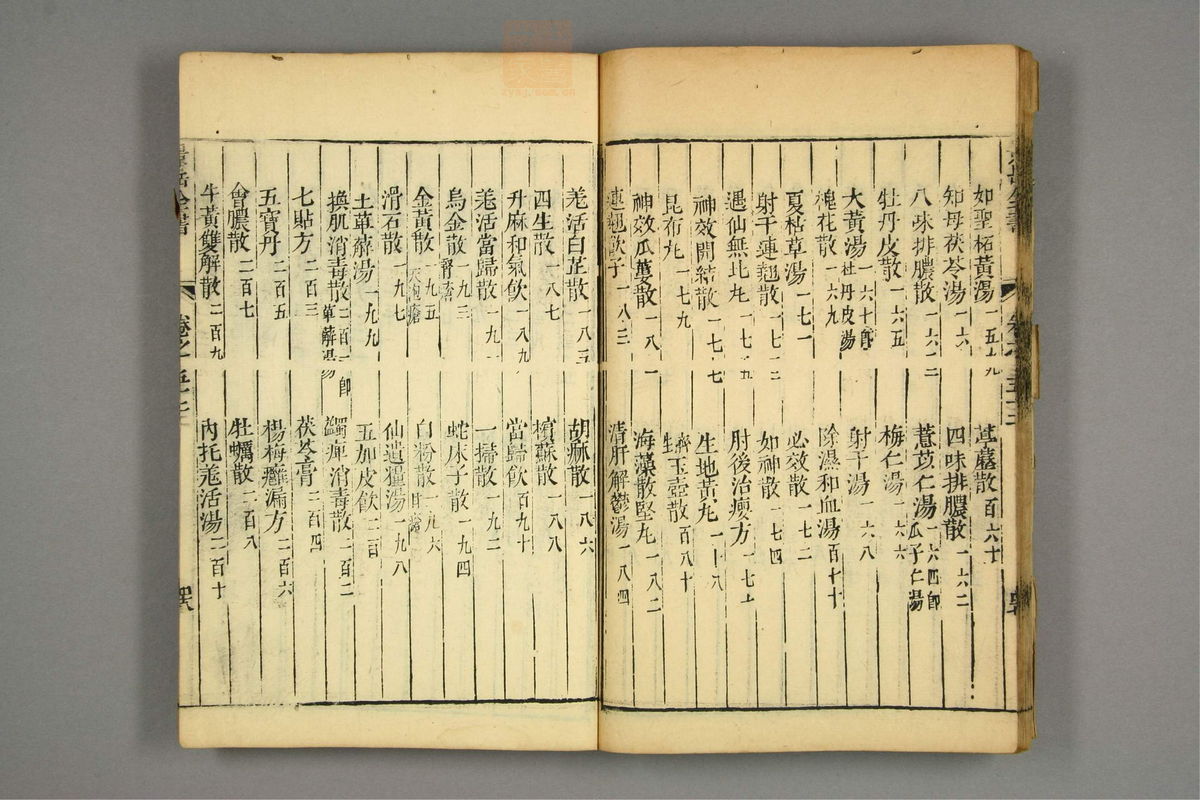 如聖柘黃湯 一五九
葶藶散 百六十
知母茯苓湯 一六
四味排膿散 一六二
八味排膿散 一六三
薏苡仁湯 一六四 卽瓜子仁湯
牡丹皮散 一六五
梅仁湯 一六六
大黃湯 一六十 卽牡丹皮湯
射干湯 一六八
槐花散 一六九
除濕和血湯 百十十
夏枯草湯 一七一
必效散 一七二
射干連翹散 一七三
如神散 一七四
遇仙無比丸 一七五
肘後治癭方 一七六
神效開結散 一七七
生地黃丸 一十八
昆布丸 一七九
蠐玉壺散 百八十
神效瓜蔞散 一八一
海藻散堅丸 一八二
連翹飲子 一八三
清肝解鬱湯 一八四
羌活白芷散 一八五
胡麻散 一八六
四生散 一八七
檳蘇散 一八八
升麻和氣飲 一八九
當歸飲 百九十
羌活當歸散 一九一
一掃散 一九二
烏金散 一九三 臀瘡
蛇床子散 一九四
金黃散 一九五 天炮瘡
白粉散 一九六 疳瘡
滑石散 一九七
仙遺糧湯 一九八
土萆薢湯 一九九
五加皮飲 二百
換肌消毒散 二百一 卽萆薢湯
蠲痺消毒散 二百二
七貼方 二百三
茯苓膏 二百四
五寶丹 二百五
楊梅癰漏方 二百六
會膿散 二百七
牡蠣散 二百八
牛黃雙解散 二百九
內托羌活湯 二百十
景岳全書
卷之
五十三